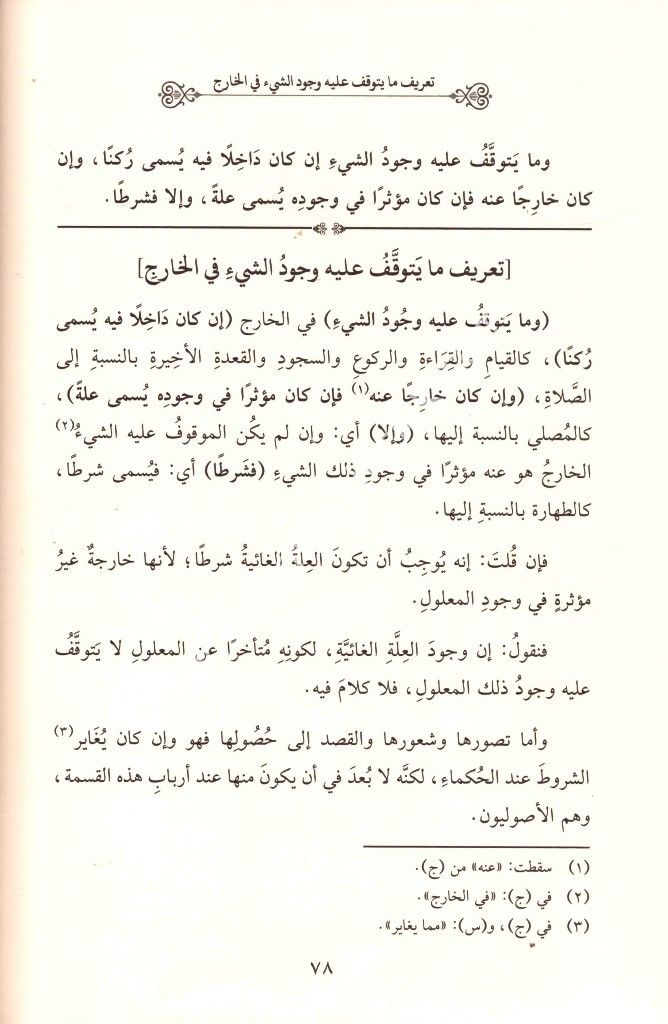 تعريف ما يتوقف عليه وجود الشيء في الخارج
وما يَتوقَّفُ عليه وجودُ الشيءِ إن كان دَاخِلًا فيه يُسمى رُكنًا، وإن
كان خارِجًا عنه فإن كان مؤثرًا في وجودِه يُسمى علةً، وإلا فشرطًا.
[تعريف ما يَتوقَّفُ عليه وجودُ الشيءِ في الخارج]
(وما يَتوقفُ عليه وجُودُ الشيءِ) في الخارج (إن كان دَاخِلًا فيه يُسمى
رُكنًا)، كالقيامِ والقِرَاءةِ والركوعِ والسجودِ والقعدةِ الأخِيرةِ بالنسبةِ إلى
الصَّلاةِ، (وإن كان خارِجًا عنه(١) فإن كان مؤثرًا في وجودِه يُسمى علةً)،
كالمُصلي بالنسبة إليها، (وإلا) أي: وإن لم يكُن الموقوفُ عليه الشيءُ(٢)
الخارجُ هو عنه مؤثرًا في وجودِ ذلك الشيءِ (فشَرطًا) أي: فيُسمى شرطًا،
كالطهارة بالنسبةِ إليها.
فإن قُلتَ: إنه يُوجِبُ أن تكونَ العِلةُ الغائيةُ شرطًا؛ لأنها خارجةٌ غيرُ
مؤثرةٍ في وجودِ المعلولِ.
فنقولُ: إن وجودَ العِلَّةِ الغائيَّةِ، لكونِهِ مُتأخرًا عن المعلولِ لا يَتوقَّفُ
عليه وجودُ ذلك المعلولِ، فلا كلامَ فيه.
وأما تصورها وشعورها والقصد إلى حُصُولِها فهو وإن كان يُغَاير(٣)
الشروطَ عند الحُكماءِ، لكنَّه لا بُعدَ في أن يكونَ منها عند أربابِ هذه القسمة،
وهم الأصوليون.
(١) سقطت: «عنه» من (ج).
(٢) في (ج): «في الخارج».
(٣) في (ج)، و(س): «مما يغاير».
٧٨